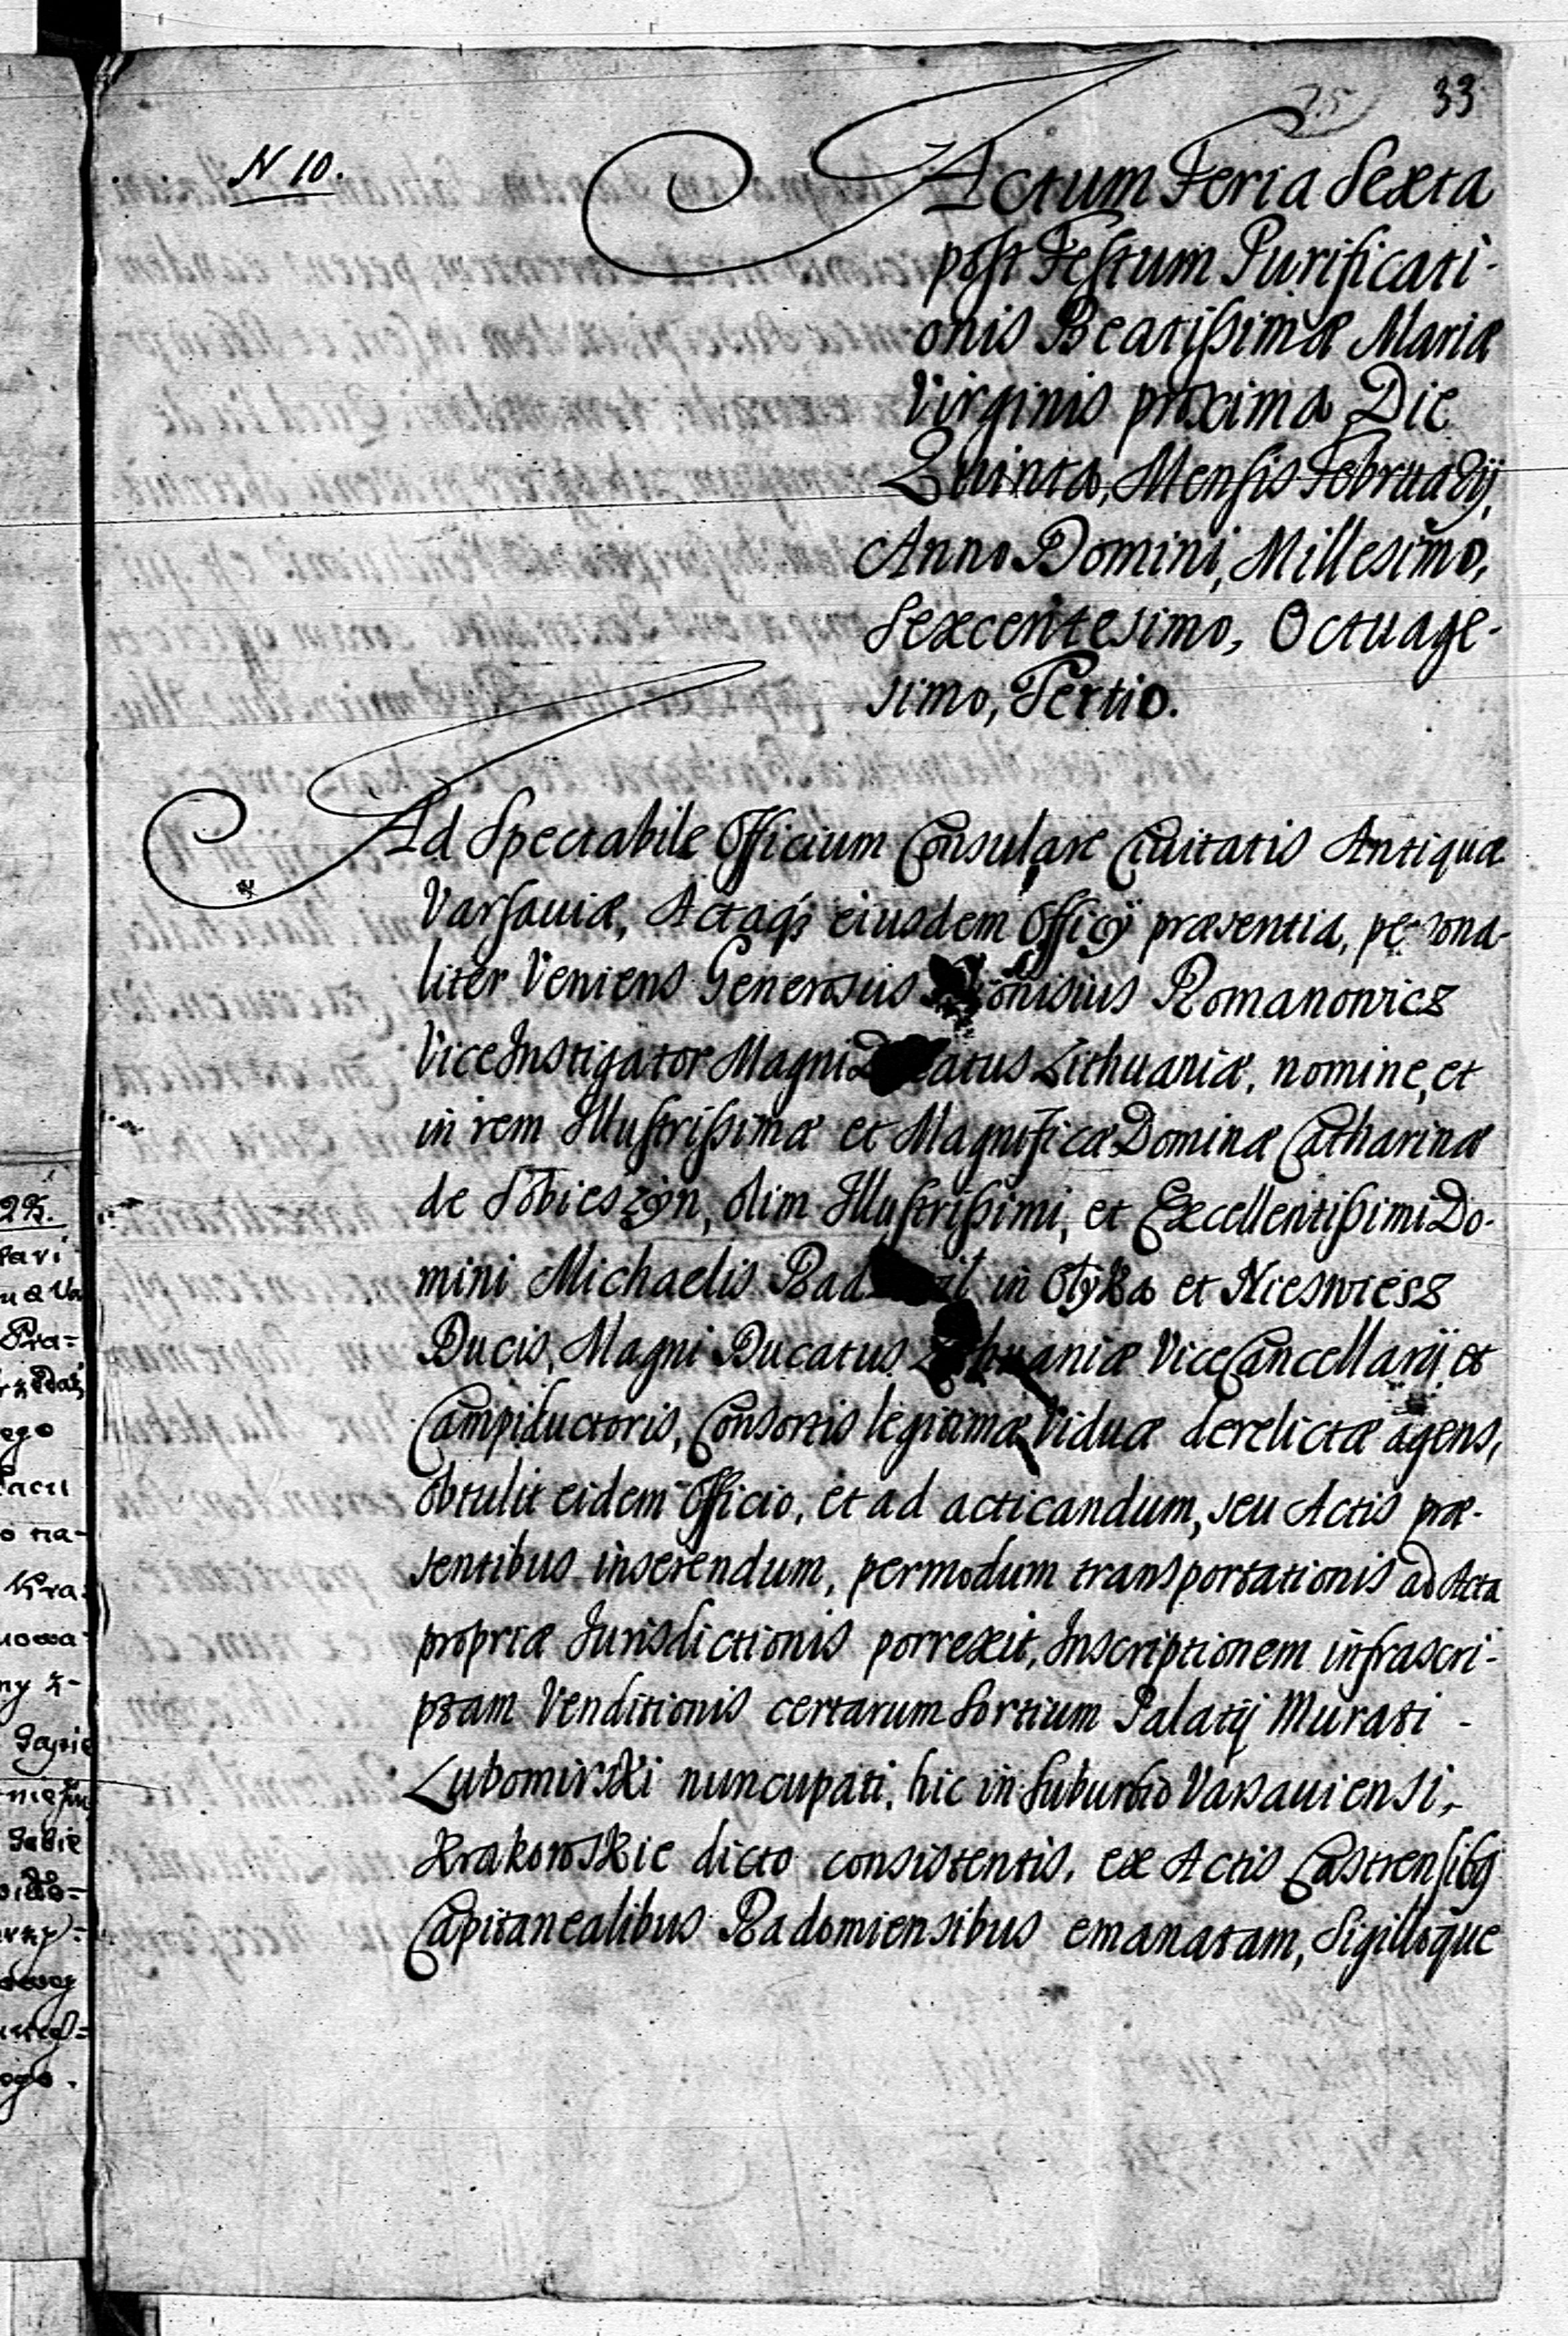 33
25
N 10.
Actum Feria Sexta
post Festum Purificati-
onis Beatissimæ Mariæ
Virginis proxima Die
Quinta, Mensis Februarÿ,
Anno Domini, Millesimo,
Sexcentesimo, Octuage-
simo, Tertio.
Ad Spectabile Officium Consulare Ciuitatis Antiquæ
Varsauiæ, Actaq; eiusdem Officÿ præsentia, persona-
liter Veniens Generosus Romanowicz
ViceInstigator Magni Lithuaniæ, nomine, et
in rem Illustrissimæ et Magnificæ Dominæ Catharinæ
de Sobieszyn, olim Illustrissimi, et Excellentissimi Do-
mini Michaelis in Otyka et Nieswiesz
Ducis, Magni Ducatus Lithuaniæ ViceCancellarÿ, et
Campiductoris, Consortis legitimæ Viduæ derelictæ agens,
obtulit eidem Officio, et ad acticandum, seu Actis præ-
sentibus inserendum, permodum transportationis ad Acta
propriæ Jurisdictionis porrexit, Inscriptionem infrascri-
ptam Venditionis certarum Sortium Palatÿ Murati -
Lubomirski nuncupati, hic in Suburbio Varsauiensi,
Krakowskie dicto consistentis, ex Actis Castrensibg
Capitanealibus Radomiensibus emanatam, Sigilloque